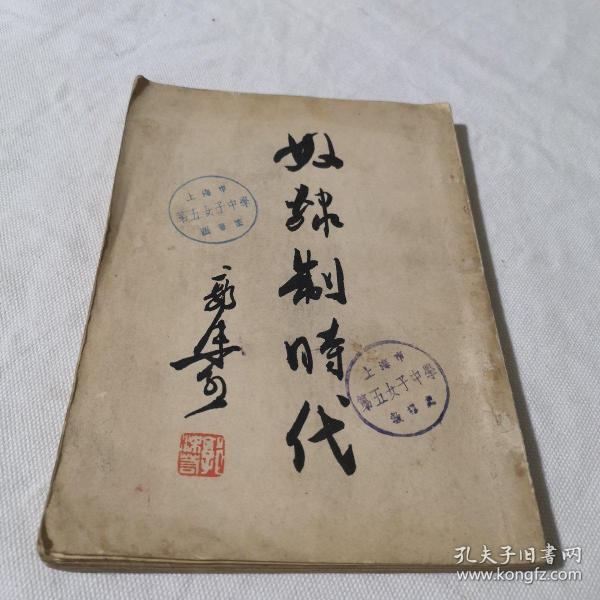 奴隸制時代
郭沫若
郭沫若
上海市
第五女子中學
圖書室
上海市
第五女子中學
圖書室
孔夫子旧书网
www.kongfz.com